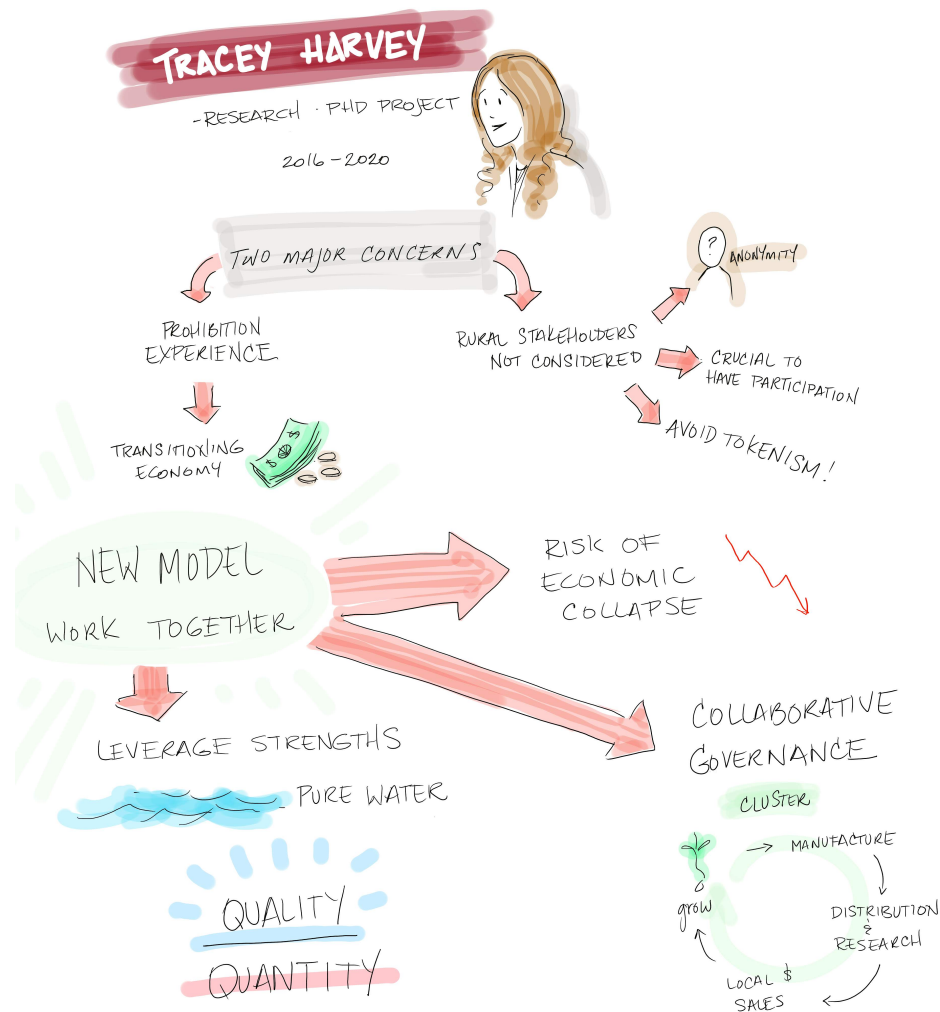 TRACEY HARVEY
-RESEARCH · PHD PROJECT
2016-2020
TWO MAJOR CONCERNS
PROHIBITION
EXPERIENCE
TRANSITIONING
ECONOMY
$
$
RURAL STAKEHOLDERS
NOT CONSIDERED
?
ANONYMITY
CRUCIAL TO
HAVE PARTICIPATION
AVOID TOKENISM!
NEW MODEL
WORK TOGETHER
RISK OF
ECONOMIC
COLLAPSE
LEVERAGE STRENGTHS
PURE WATER
QUALITY
QUANTITY
COLLABORATIVE
GOVERNANCE
CLUSTER
grow
MANUFACTURE
DISTRIBUTION
&
RESEARCH
LOCAL $
SALES